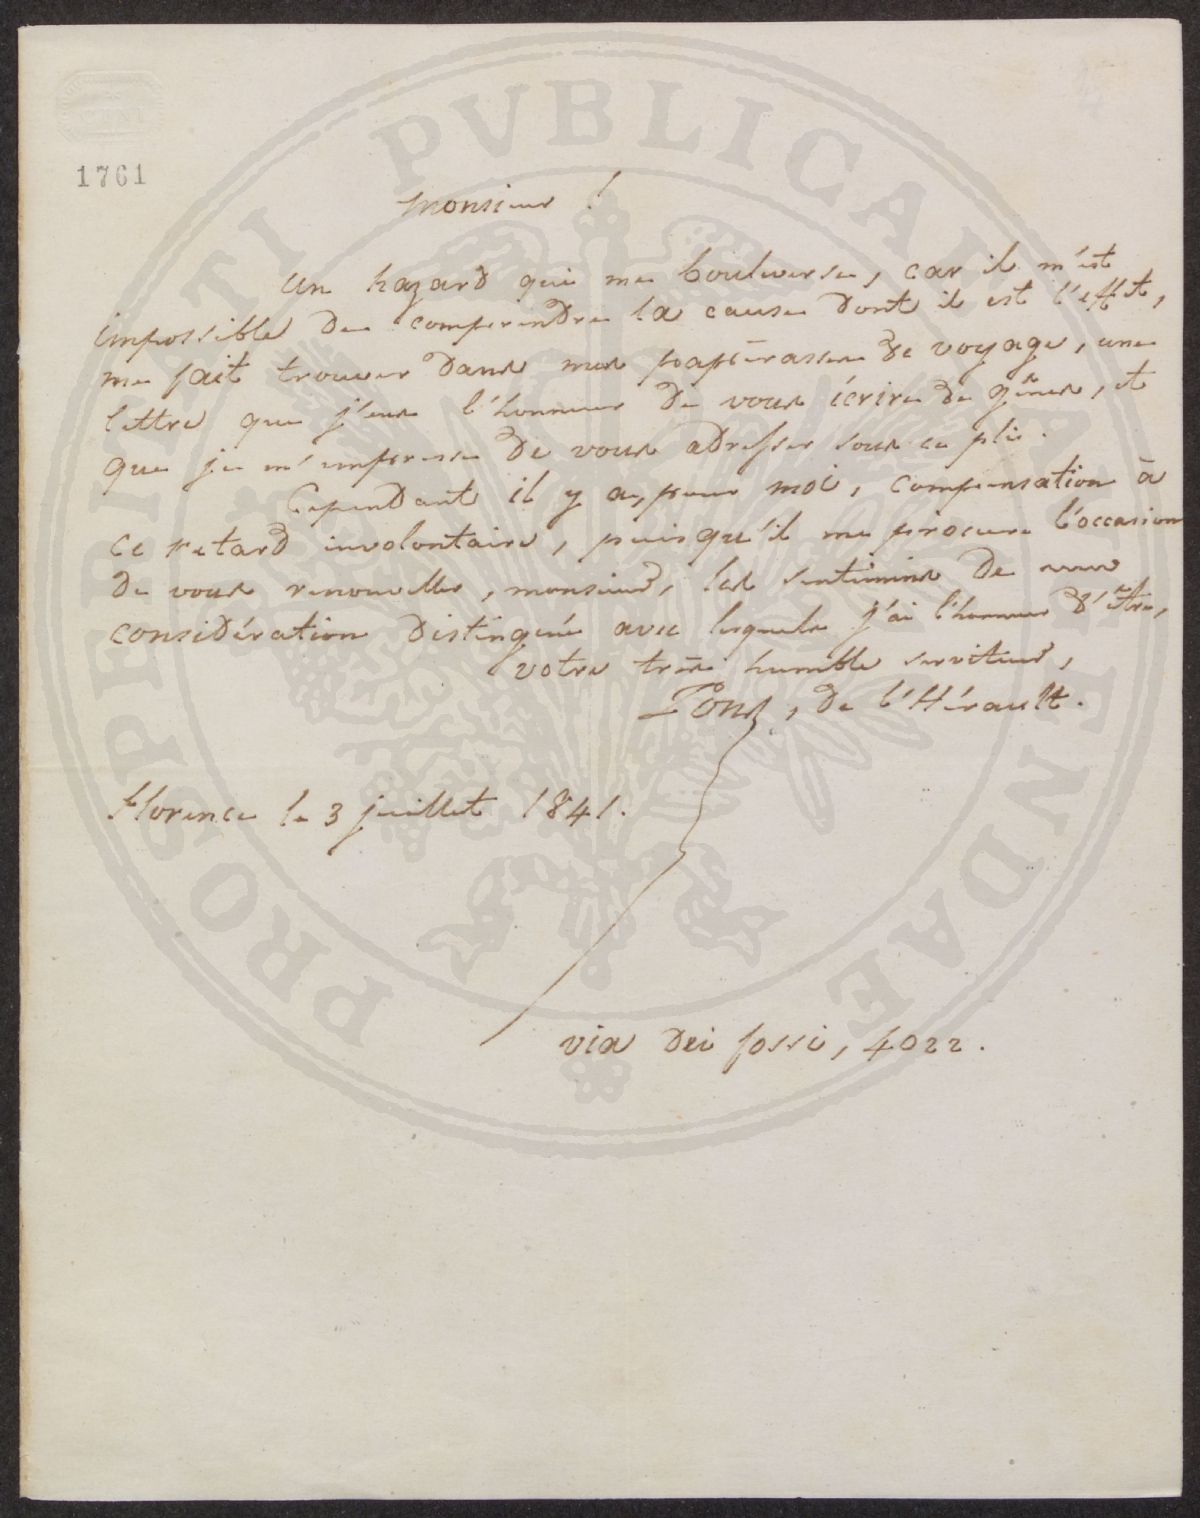 1761
PROSPERITATI PVBLICAE AVGENDAE
monsieur !
un hazard qui me bouleverse, car il m'est
impossible de comprendre la cause dont il est l'effet,
me fait trouver dans mes papérasses de voyage, une
lettre que j'eus l'honneur de vous écrire de gênes, et
que je m'empresse de vous adresser sous ce pli.
Cependant il y a, pour moi, compensation à
ce retard involontaire, puisqu'il me procure l'occasion
de vous renouveller, monsieur, les sentimens de
considération distinguée avec lesquels j'ai l'honneur d'être,
votre très humble serviteur,
Pons, de l'Hérault.
florence le 3 juillet 1841.
via dei fossi, 4022.